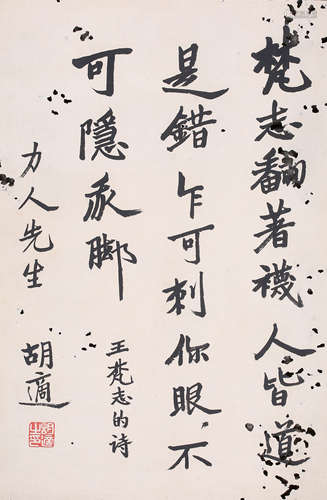 梵志翻著襪人皆道
是錯乍可刺你眼不
可隱我腳
王梵志的诗
力人先生
胡適